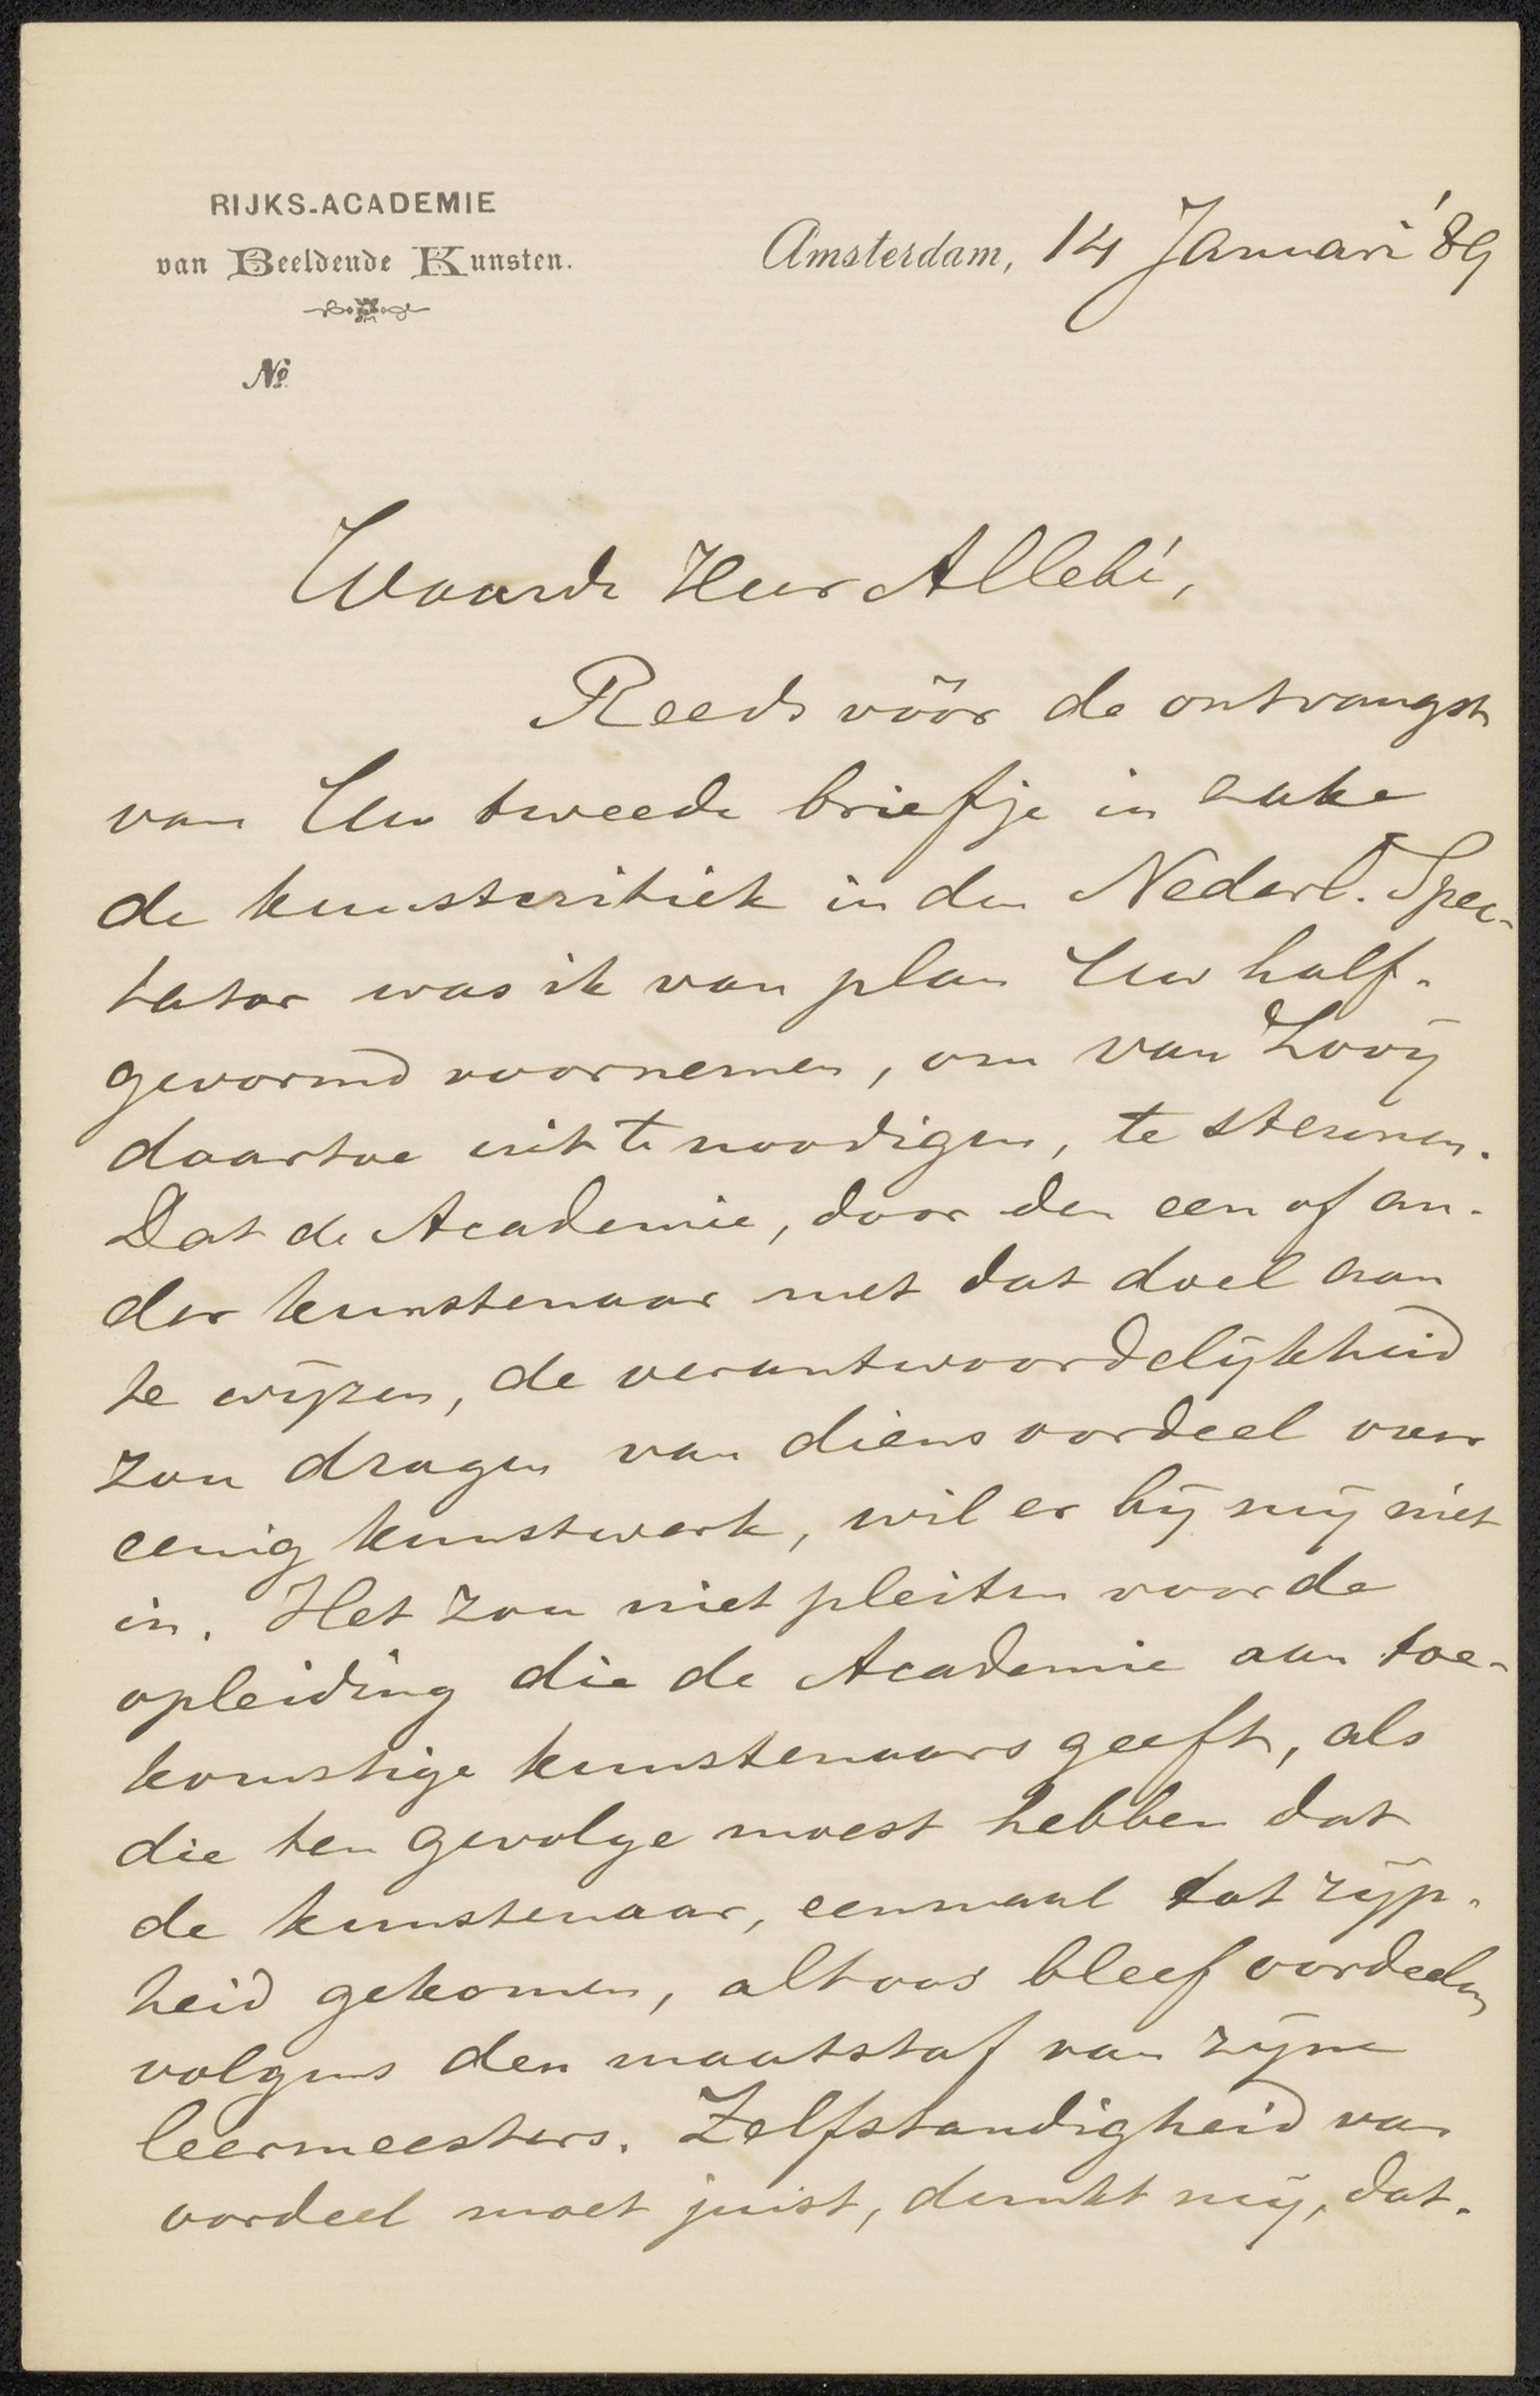 RIJKS-ACADEMIE
van Beeldende Kunsten.
Amsterdam, 14 Januari '89
No
Waarde Heer Allebé,
Reeds vóór de ontvangst
van Uw tweede briefje in zake
de kunstcritiek in den Nederl. Spec-
tator was ik van plan Uw half-
gevormd voornemen, om van Looÿ
daartoe uit te noodigen, te steunen.
Dat de Academie, door den een of an-
der kunstenaar met dat doel aan
te wijzen, de verantwoordelijkheid
zou dragen van diens oordeel over
eenig kunstwerk, wil er bij mij niet
in. Het zou niet pleiten voor de
opleiding die de Academie aan toe-
komstige kunstenaars geeft, als
die ten gevolge moest hebben dat
de kunstenaar, eenmaal tot rijp-
heid gekomen, altoos bleef oordeelen
volgens den maatstaf van zijne
leermeesters. Zelfstandigheid van
oordeel moet juist, dunkt mij, dat-